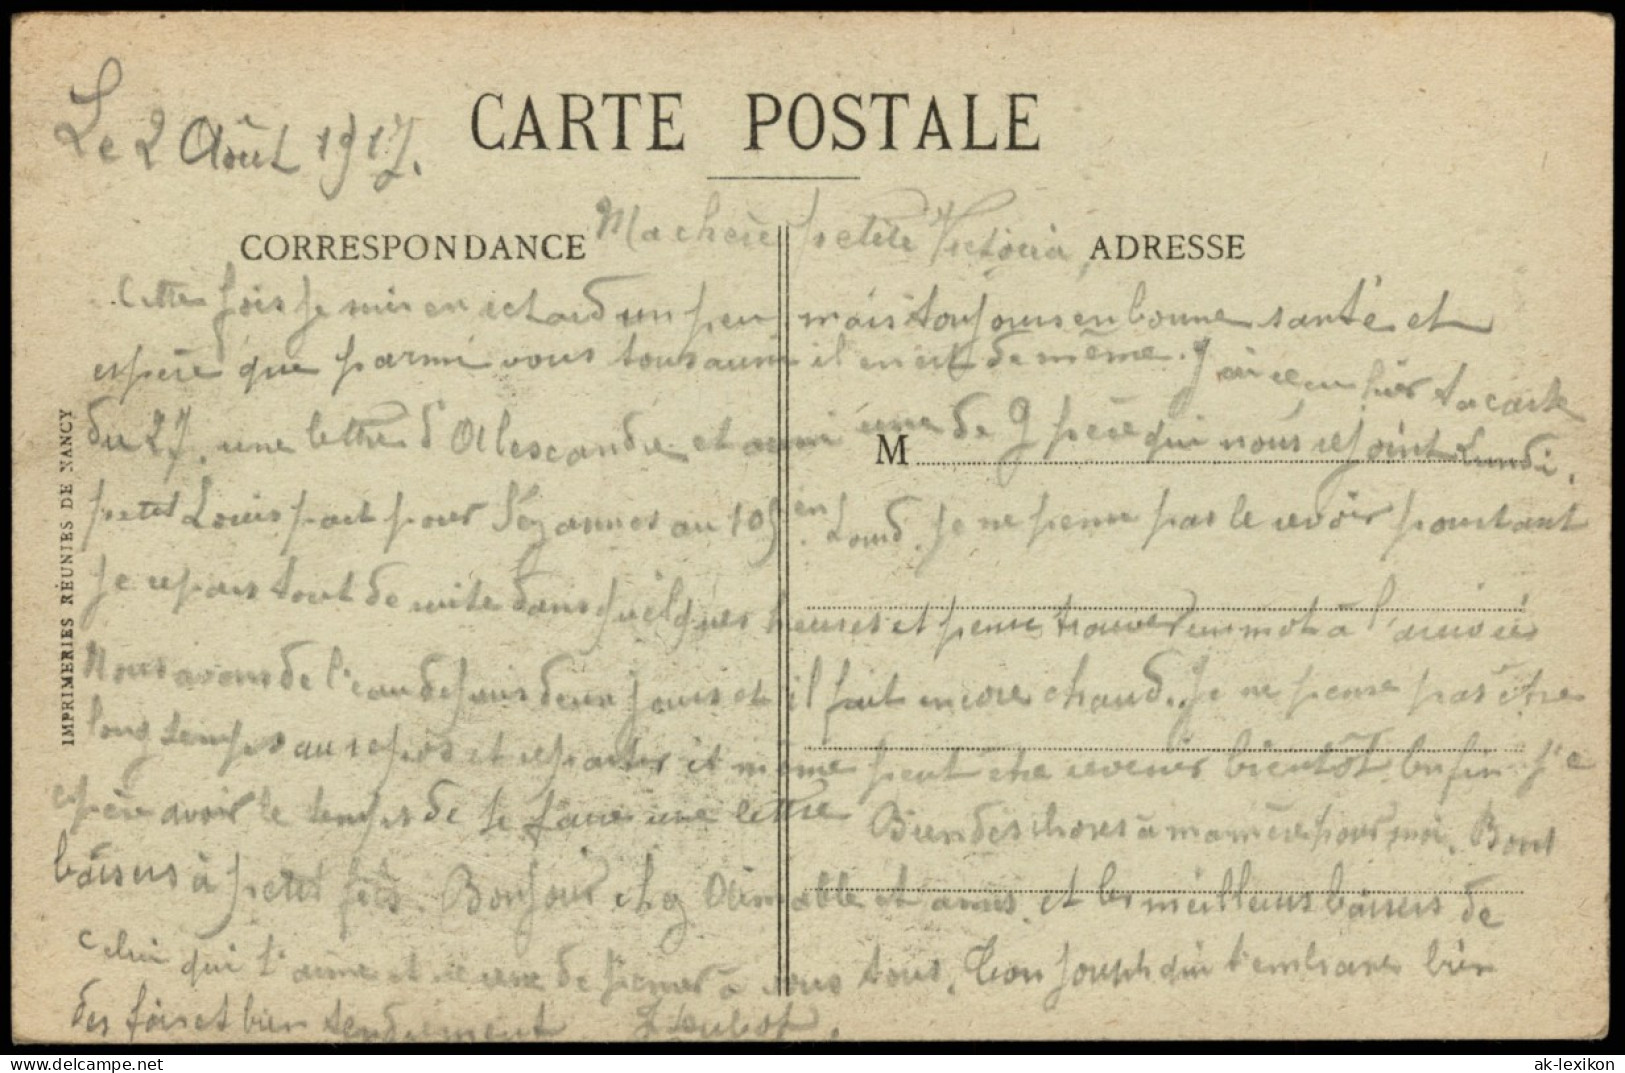 Le 2 Août 1917.
CARTE POSTALE
CORRESPONDANCE
ADRESSE
Ma chère petite Victoria,
Cette fois je suis en retard un peu mais toujours en bonne santé et
espère que parmi vous tous aussi il en est de même. J'ai reçu hier ta carte
du 27, une lettre d'Alescandre et aussi une de g père qui nous rejoint Lundi.
M
petit Louis part pour au en je ne pense pas le revoir pourtant
je repars tout de suite dans quelques heures et pense trouver un mot à l'arrivée
Nous avons de l'eau depuis deux jours et il fait encore chaud. Je ne pense pas être
longtemps au repos et repartir et même peut être revenir bientôt. Enfin j'e
espère avoir le temps de te faire une lettre Bien des choses à ma mère pour moi. Bons
baisers à petit fils. Bonjour chez Aimable et amis et les meilleurs baisers de
celui qui t'aime et ne cesse de penser à vous tous. Ton Joseph qui t'embrasse bien
des fois et bien tendrement
IMPRIMERIES RÉUNIES DE NANCY
oldthing.de
ak-lexikon